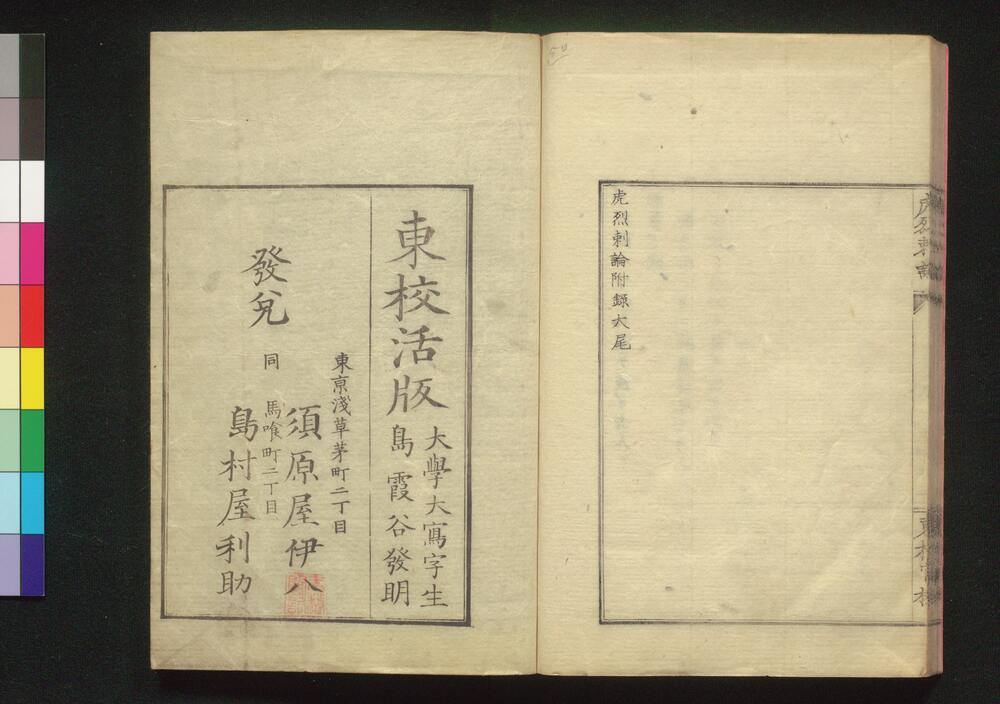 虎烈刺論附録大尾
東校活版
大學大寫字生
島霞谷發明
東亰淺草茅町二丁目
須原屋伊八
同 馬喰町二丁目
島村屋利助
發兌